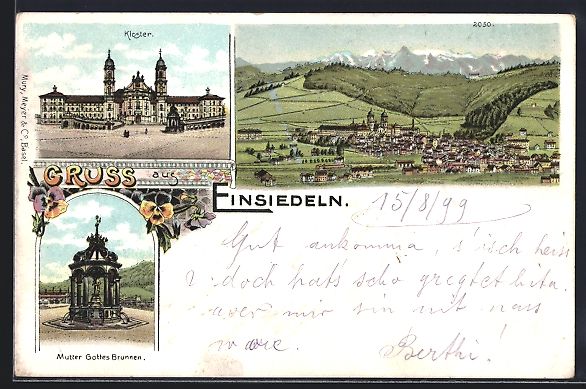 Kloster.
2030.
Mury, Meyer & Co, Basel.
GRUSS aus
EINSIEDELN.
15/8/99
Gut ankomma, s'isch heiss
doch hats scho gregtet hita.
aver mir sin nit nass
worc.
Berthi!
Mutter Gottes Brunnen.